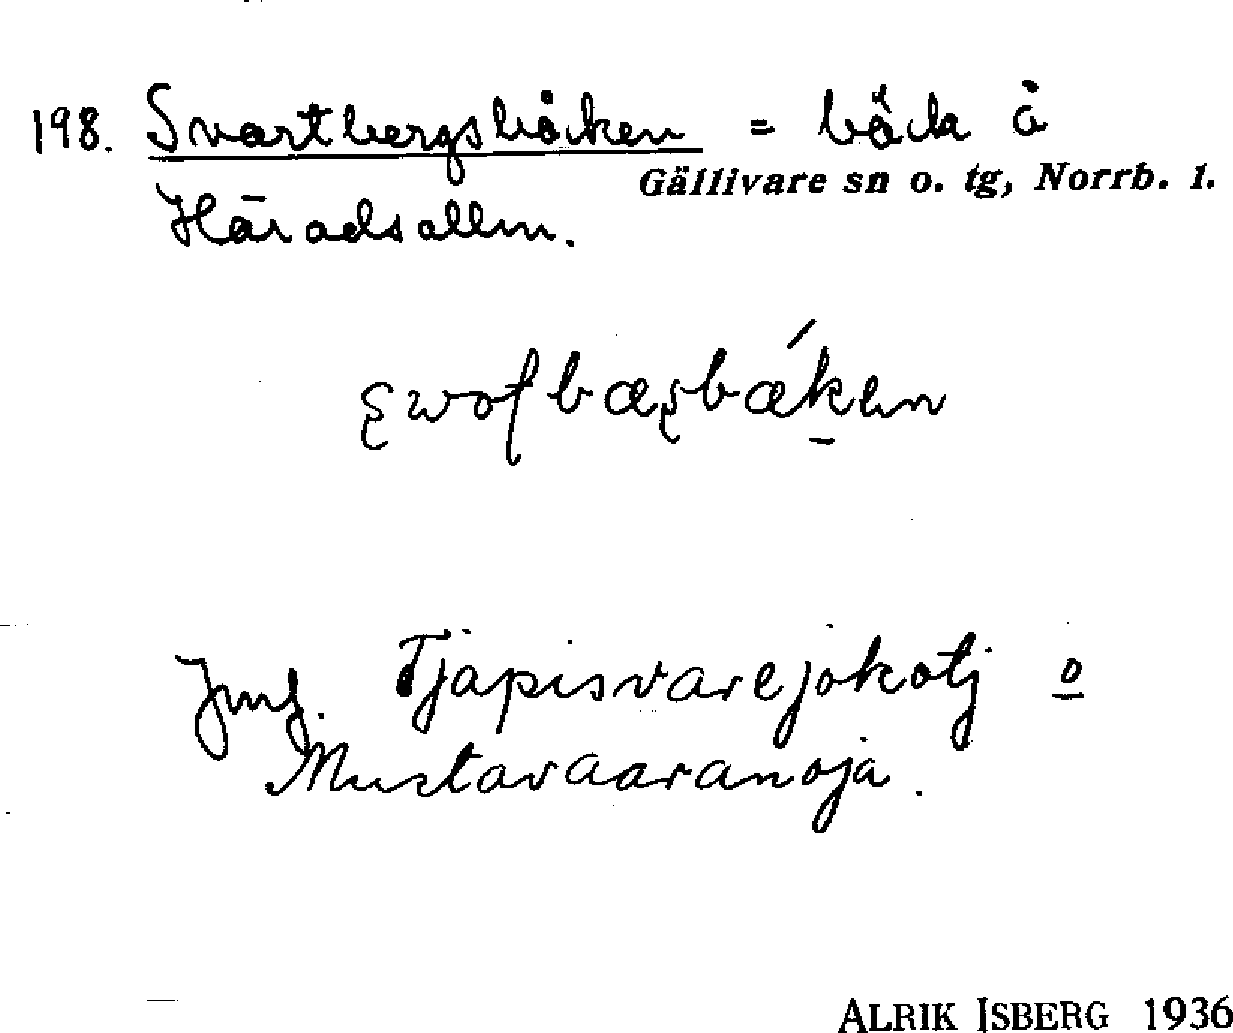 198. Svartbergsbäcken = bäck å
Gällivare sn o. tg, Norrb. l.
Häradsallm.
Jmf. Tjäpisvarejokotj o
Mustavaaranoja.
ALRIK ISBERG 1936